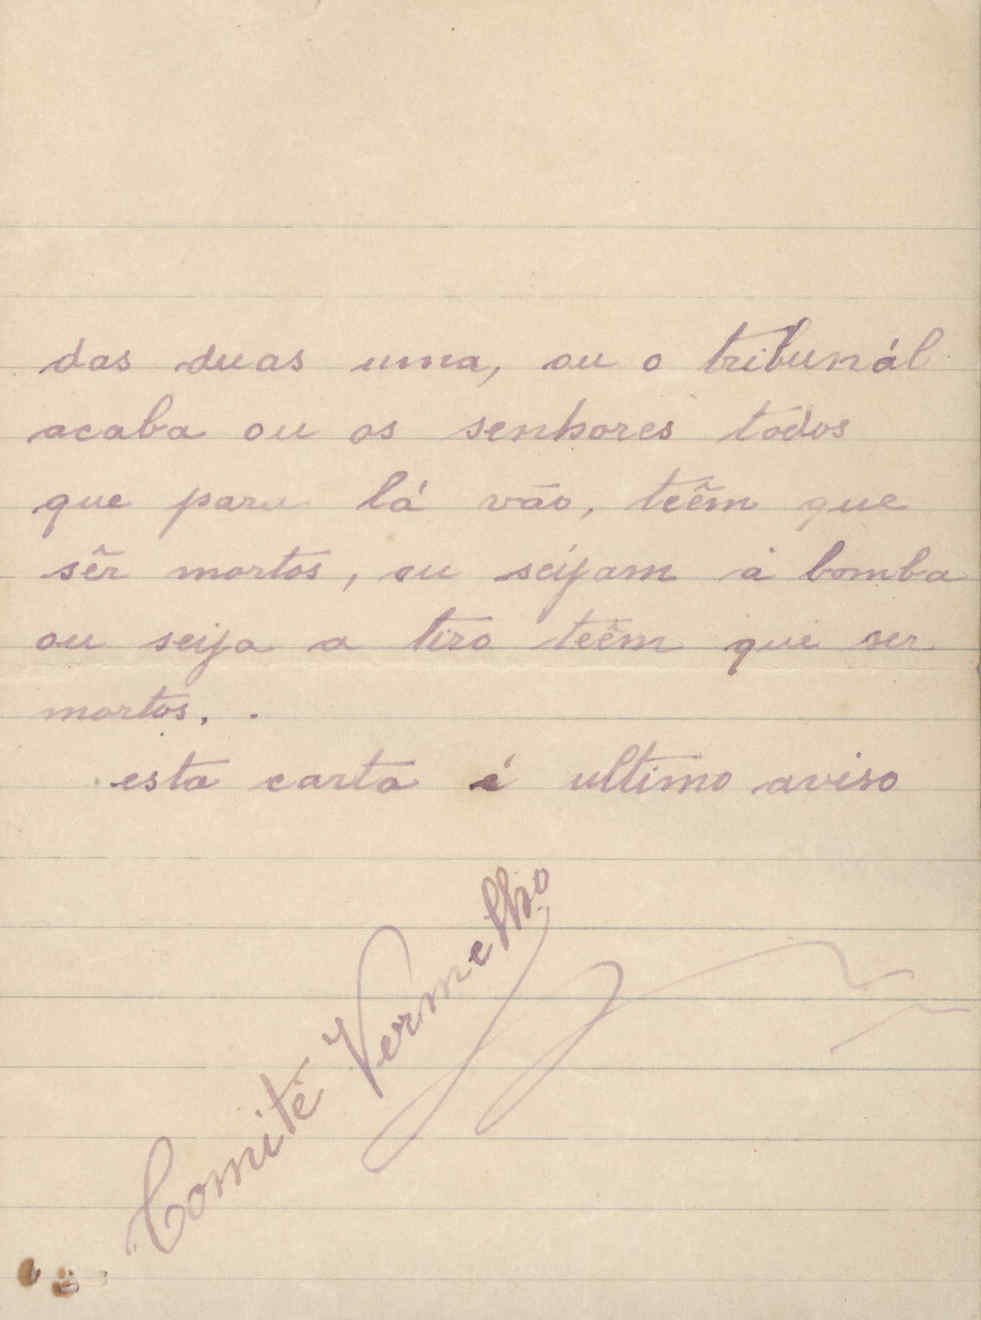 das duas uma, ou o tribunál
acaba ou os senhores todos
que para lá vão, teêm que
sêr mortos, ou seijam á bomba
ou seija a tiro teêm que ser
mortos. .
esta carta é ultimo aviso
Comité Vermelho